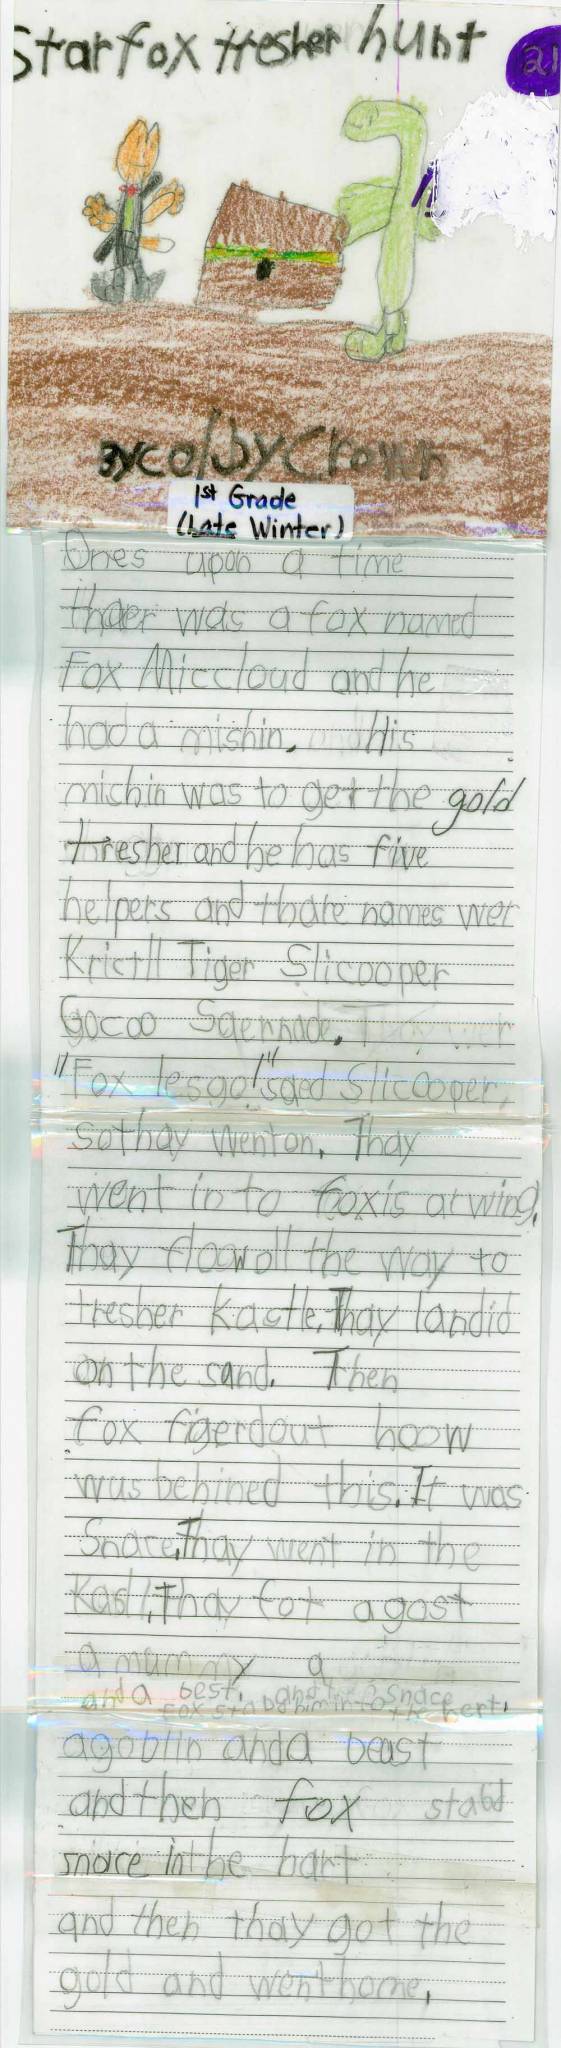 Starfox tresher hunt
21
By colby Crown
1st Grade
(Late Winter)
Ones upon a time
thaer was a fox named
Fox Miccloud and he
had a mishin. His
michin was to get the gold
tresher and he has five
helpers and thare names wer
Krictll Tiger Slicooper
Gocoo Saernade.
"Fox lesgo!" saed Slicooper,
so thay went on. Thay
went in to foxis arwing.
Thay floow oll the way to
tresher kastle. Thay landid
on the sand. Then
fox figerd out hoow
wus behined this. It was
Snace. Thay went in the
Kasl. Thay fot a gost
a mummy a
and a best. and snace
fox stabd him in to the hert.
a goblin and a beast
and then fox stabd
snace in the hart
and then thay got the
gold and went home.